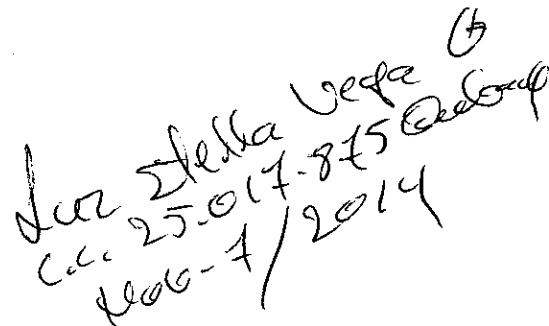 Luz Stella Vega G
c.c. 25.017.875
Nov-7/2014